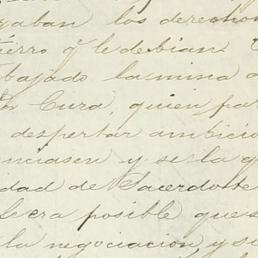 zaban los derechos
ierro q.e le debian.
bajado la mina
n Cura, quien pa
despertar ambicio
nciasen y se la q
idad de Sacerdote
le era posible que s
la negociacion y s